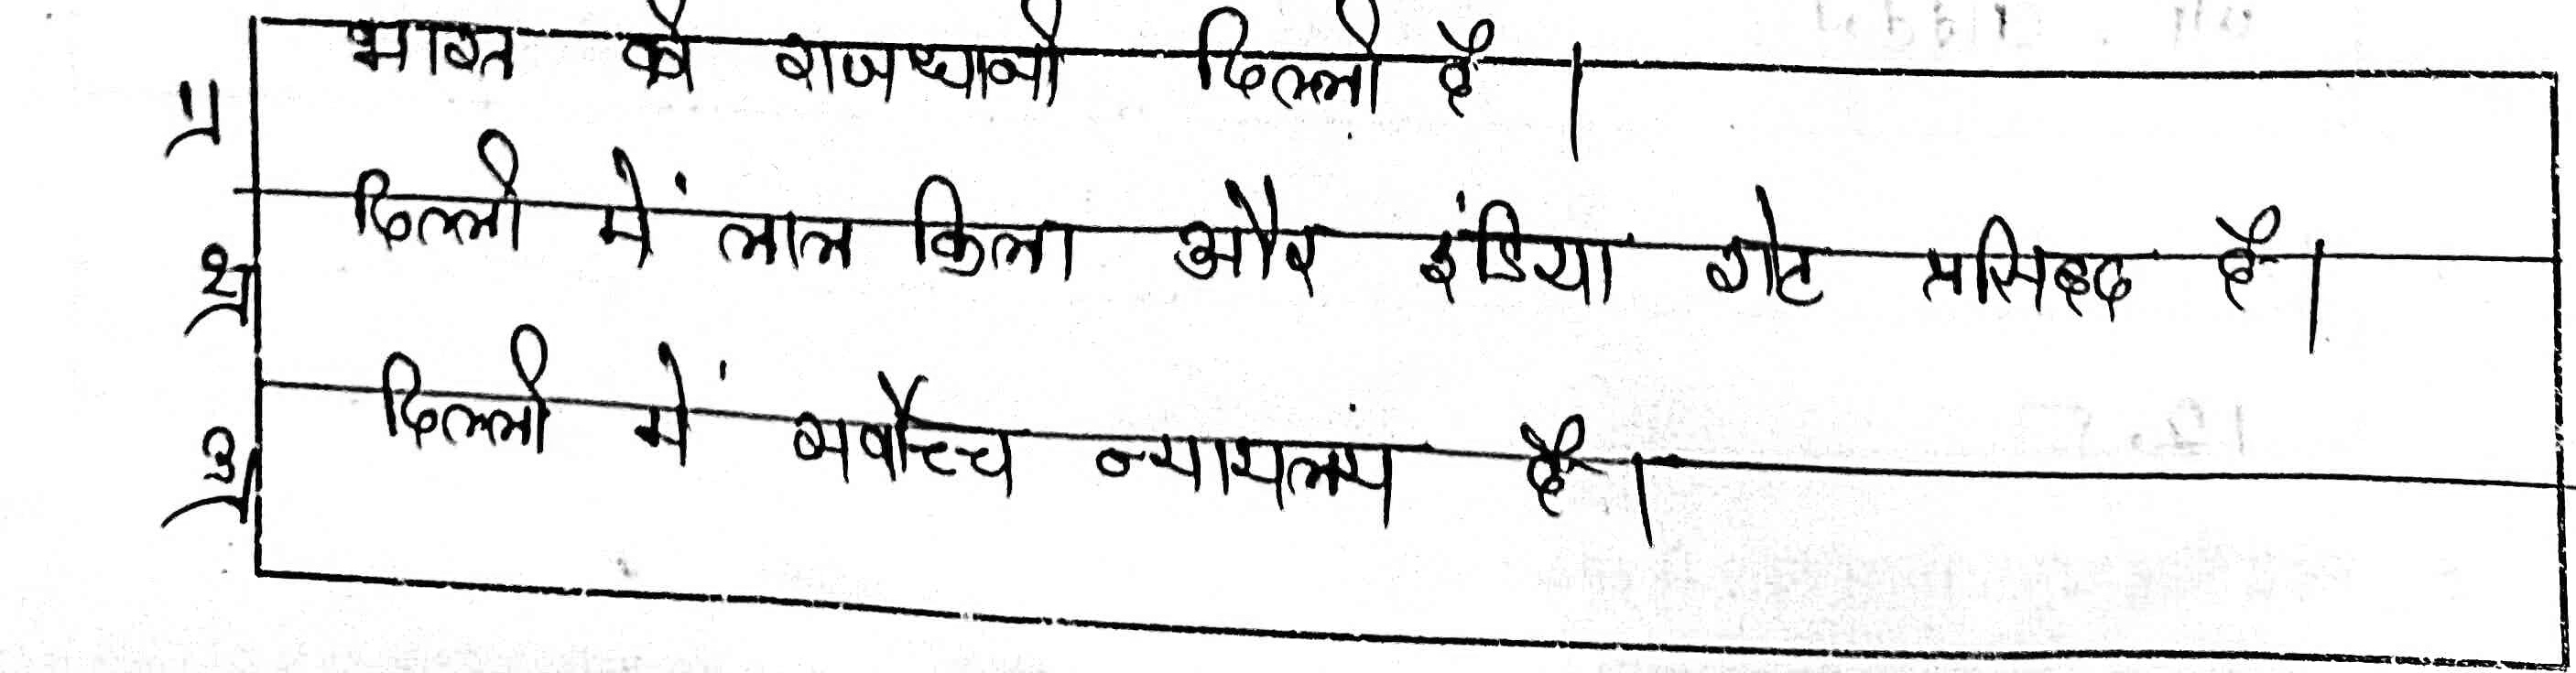 १) भारत की राजधानी दिल्ली है।
२) दिल्ली में लाल किला और इंडिया गेट प्रसिद्ध है।
३) दिल्ली में सर्वोच्च न्यायलय है।